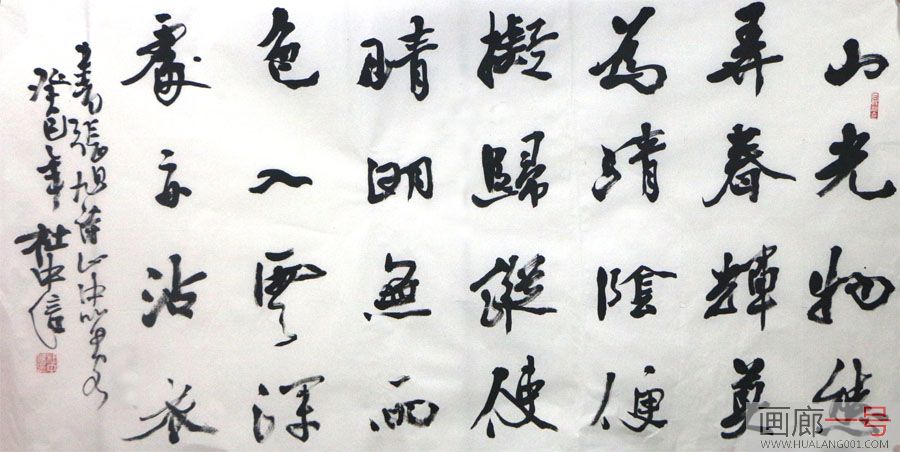 山光物態
弄春輝莫
為輕陰便
擬歸縱使
晴明無雨
色入雲深
處亦沾衣
書張旭詩山中留客
癸巳年 杜中信
画廊一号
WWW.HUALANG001.COM